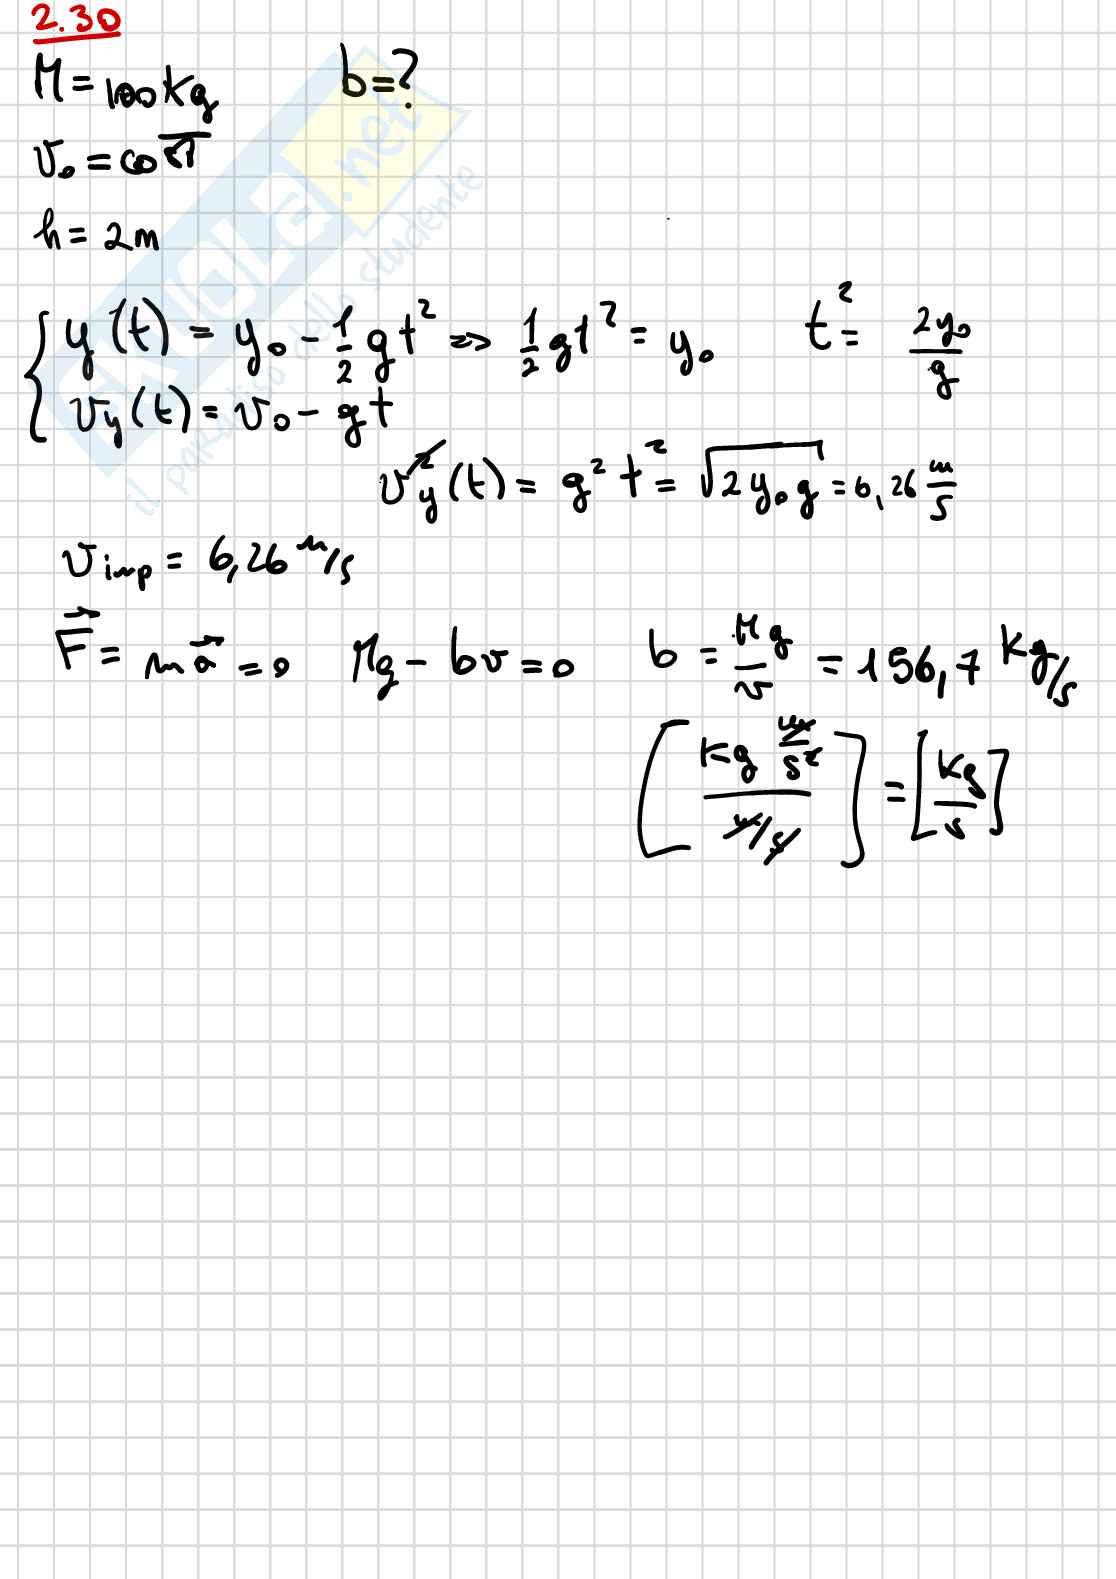 2.30
M = 100 kg b = ?
v₀ = cost
h = 2m
{ y(t) = y₀ - 1/2 gt² => 1/2 gt² = y₀ t² = 2y₀/g
v_y(t) = v₀ - gt
v_y²(t) = g² t² = √(2y₀g) = 6,26 m/s
v_imp = 6,26 m/s
F⃗ = m a⃗ = 0 Mg - bv = 0 b = Mg/v = 156,7 Kg/s
[ (Kg m/s²) / (m/s) ] = [ Kg/s ]
SKUOLA.net
il paradiso dello studente